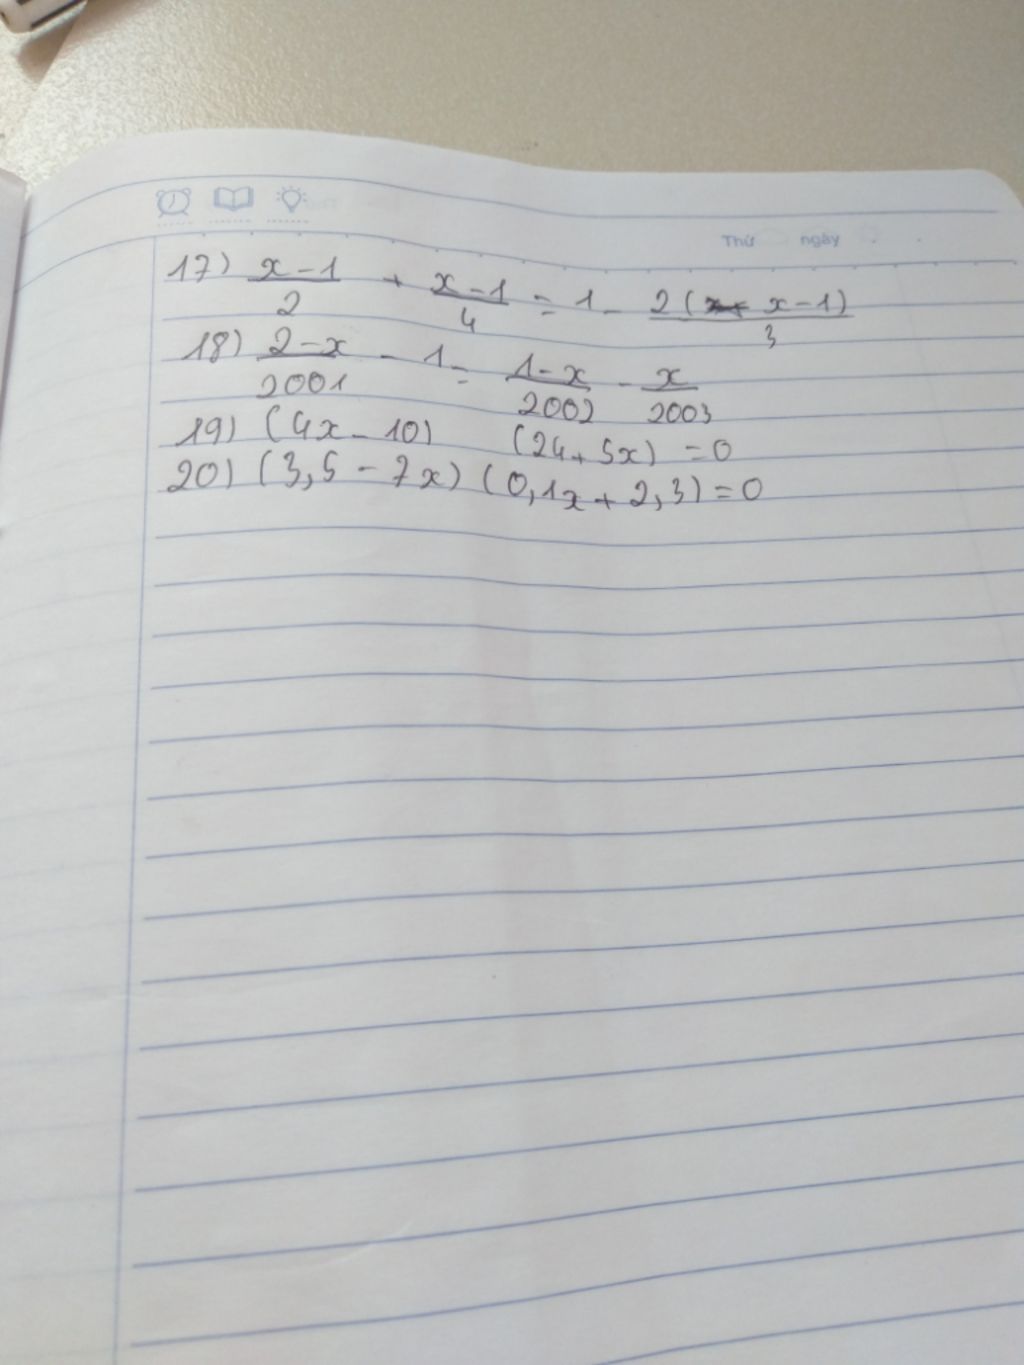 Thứ ngày
17) \frac{x-1}{2} + \frac{x-1}{4} = 1 - \frac{2(x-1)}{3}
18) \frac{2-x}{2001} - 1 = \frac{1-x}{2002} - \frac{x}{2003}
19) (4x - 10) (24 + 5x) = 0
20) (3,5 - 7x) (0,1x + 2,3) = 0